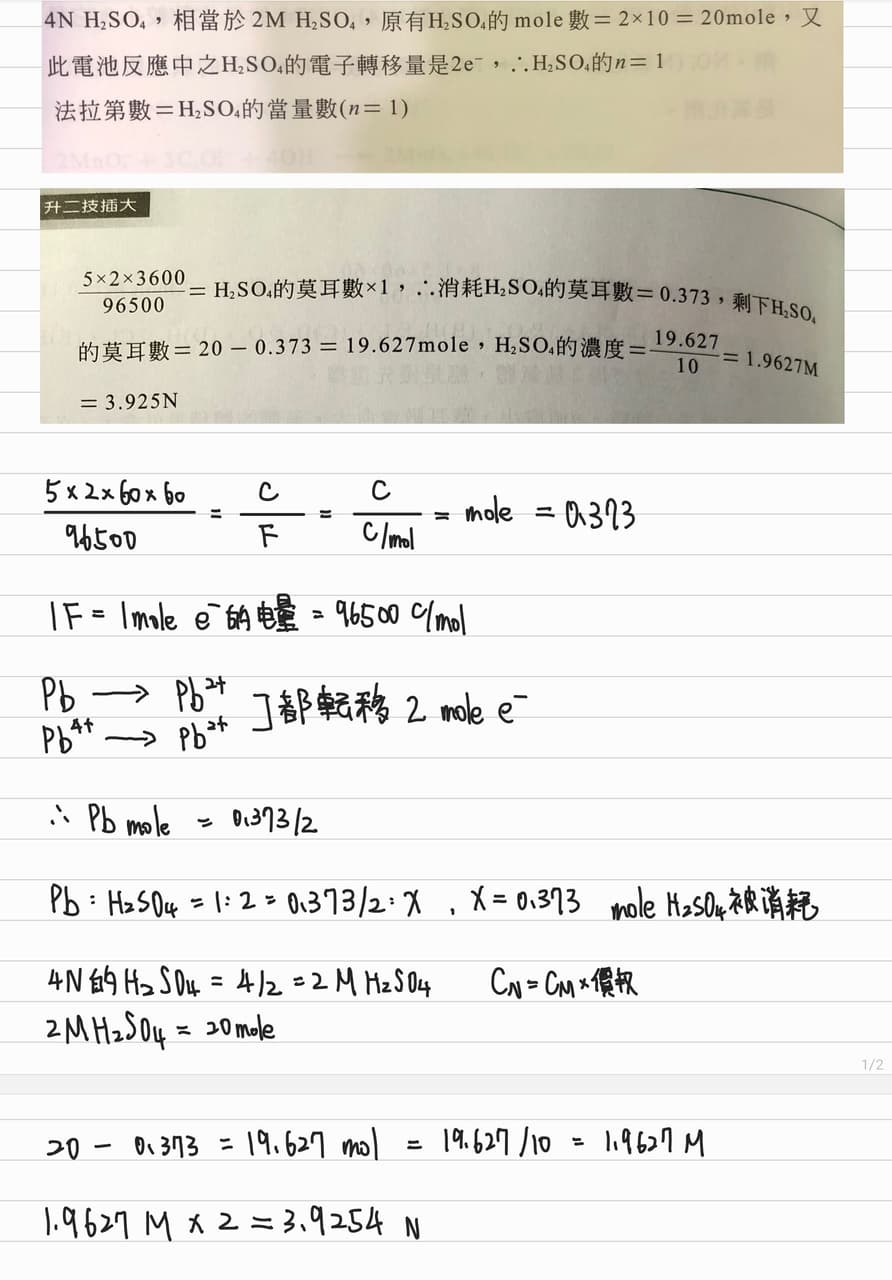 4N H₂SO₄,相當於2M H₂SO₄,原有H₂SO₄的mole數=2×10=20mole,又
此電池反應中之H₂SO₄的電子轉移量是2e⁻,∴H₂SO₄的n=1
法拉第數=H₂SO₄的當量數(n=1)
升二技插大
5×2×3600/96500 = H₂SO₄的莫耳數×1,∴消耗H₂SO₄的莫耳數=0.373,剩下H₂SO₄
的莫耳數=20-0.373=19.627mole,H₂SO₄的濃度=19.627/10=1.9627M
=3.925N
5×2×60×60/96500 = C/F = C/C/mol = mole = 0.373
1F = 1mole e⁻的电量 = 96500 C/mol
Pb → Pb²⁺
Pb⁴⁺ → Pb²⁺ ]都転移 2 mole e⁻
∴ Pb mole = 0.373/2
Pb : H₂SO₄ = 1:2 = 0.373/2 : X , X = 0.373 mole H₂SO₄被消耗
4N的H₂SO₄ = 4/2 = 2M H₂SO₄ C_N = C_M × 價
2M H₂SO₄ = 20mole
1/2
20 - 0.373 = 19.627 mol = 19.627/10 = 1.9627 M
1.9627 M × 2 = 3.9254 N